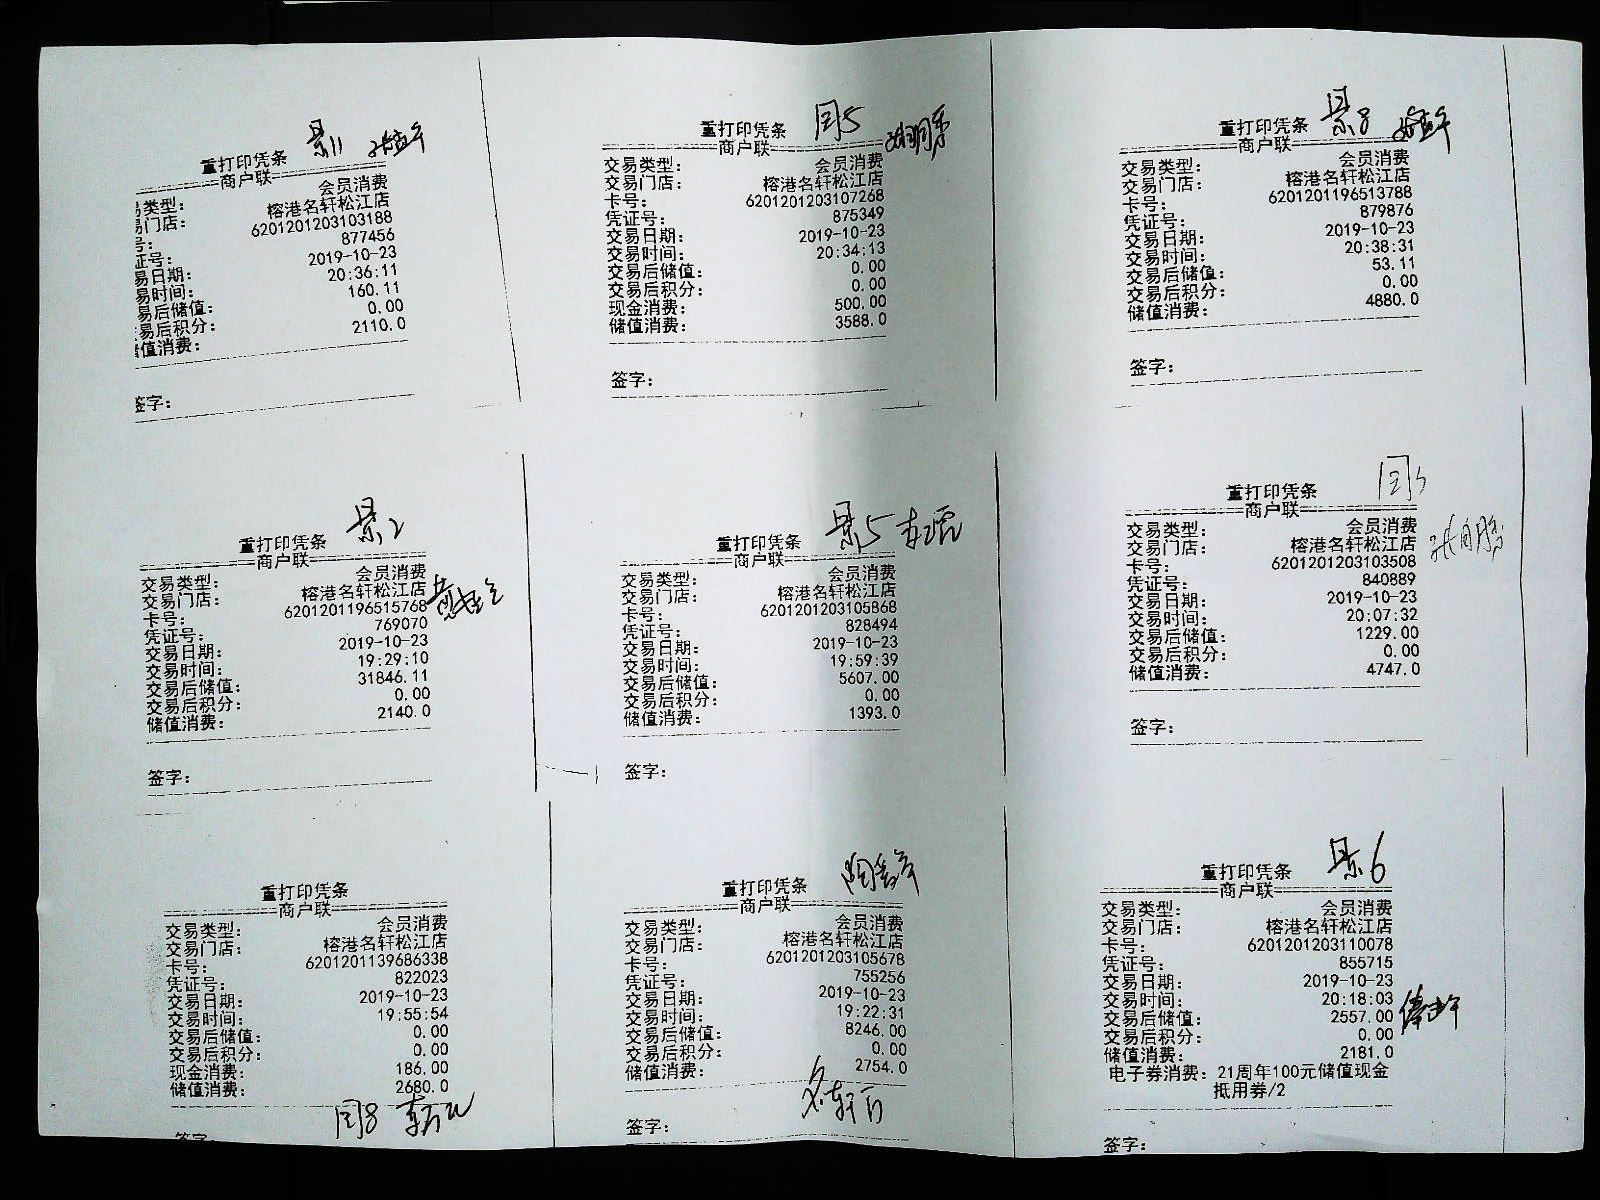 景11
重打印凭条
商户联
易类型： 会员消费
易门店： 榕港名轩松江店
号： 6201201203103188
证号： 877456
易日期： 2019-10-23
易时间： 20:36:11
易后储值： 160.11
易后积分： 0.00
储值消费： 2110.0
签字：
闰5
重打印凭条
商户联
交易类型： 会员消费
交易门店： 榕港名轩松江店
卡号： 6201201203107268
凭证号： 875349
交易日期： 2019-10-23
交易时间： 20:34:13
交易后储值： 0.00
交易后积分： 0.00
现金消费： 500.00
储值消费： 3588.0
签字：
景8
重打印凭条
商户联
交易类型： 会员消费
交易门店： 榕港名轩松江店
卡号： 6201201196513788
凭证号： 879876
交易日期： 2019-10-23
交易时间： 20:38:31
交易后储值： 53.11
交易后积分： 0.00
储值消费： 4880.0
签字：
景2
重打印凭条
商户联
交易类型： 会员消费
交易门店： 榕港名轩松江店
卡号： 6201201196515768
凭证号： 769070
交易日期： 2019-10-23
交易时间： 19:29:10
交易后储值： 31846.11
交易后积分： 0.00
储值消费： 2140.0
签字：
景5
重打印凭条
商户联
交易类型： 会员消费
交易门店： 榕港名轩松江店
卡号： 6201201203105868
凭证号： 828494
交易日期： 2019-10-23
交易时间： 19:59:39
交易后储值： 5607.00
交易后积分： 0.00
储值消费： 1393.0
签字：
重打印凭条
商户联
交易类型： 会员消费
交易门店： 榕港名轩松江店
卡号： 6201201203103508
凭证号： 840889
交易日期： 2019-10-23
交易时间： 20:07:32
交易后储值： 1229.00
交易后积分： 0.00
储值消费： 4747.0
签字：
重打印凭条
商户联
交易类型： 会员消费
交易门店： 榕港名轩松江店
卡号： 6201201139686338
凭证号： 822023
交易日期： 2019-10-23
交易时间： 19:55:54
交易后储值： 0.00
交易后积分： 0.00
现金消费： 186.00
储值消费： 2680.0
闰8
签字
重打印凭条
商户联
交易类型： 会员消费
交易门店： 榕港名轩松江店
卡号： 6201201203105678
凭证号： 755256
交易日期： 2019-10-23
交易时间： 19:22:31
交易后储值： 8246.00
交易后积分： 0.00
储值消费： 2754.0
签字：
景6
重打印凭条
商户联
交易类型： 会员消费
交易门店： 榕港名轩松江店
卡号： 6201201203110078
凭证号： 855715
交易日期： 2019-10-23
交易时间： 20:18:03
交易后储值： 2557.00
交易后积分： 0.00
储值消费： 2181.0
电子券消费：21周年100元储值现金
抵用券/2
签字：